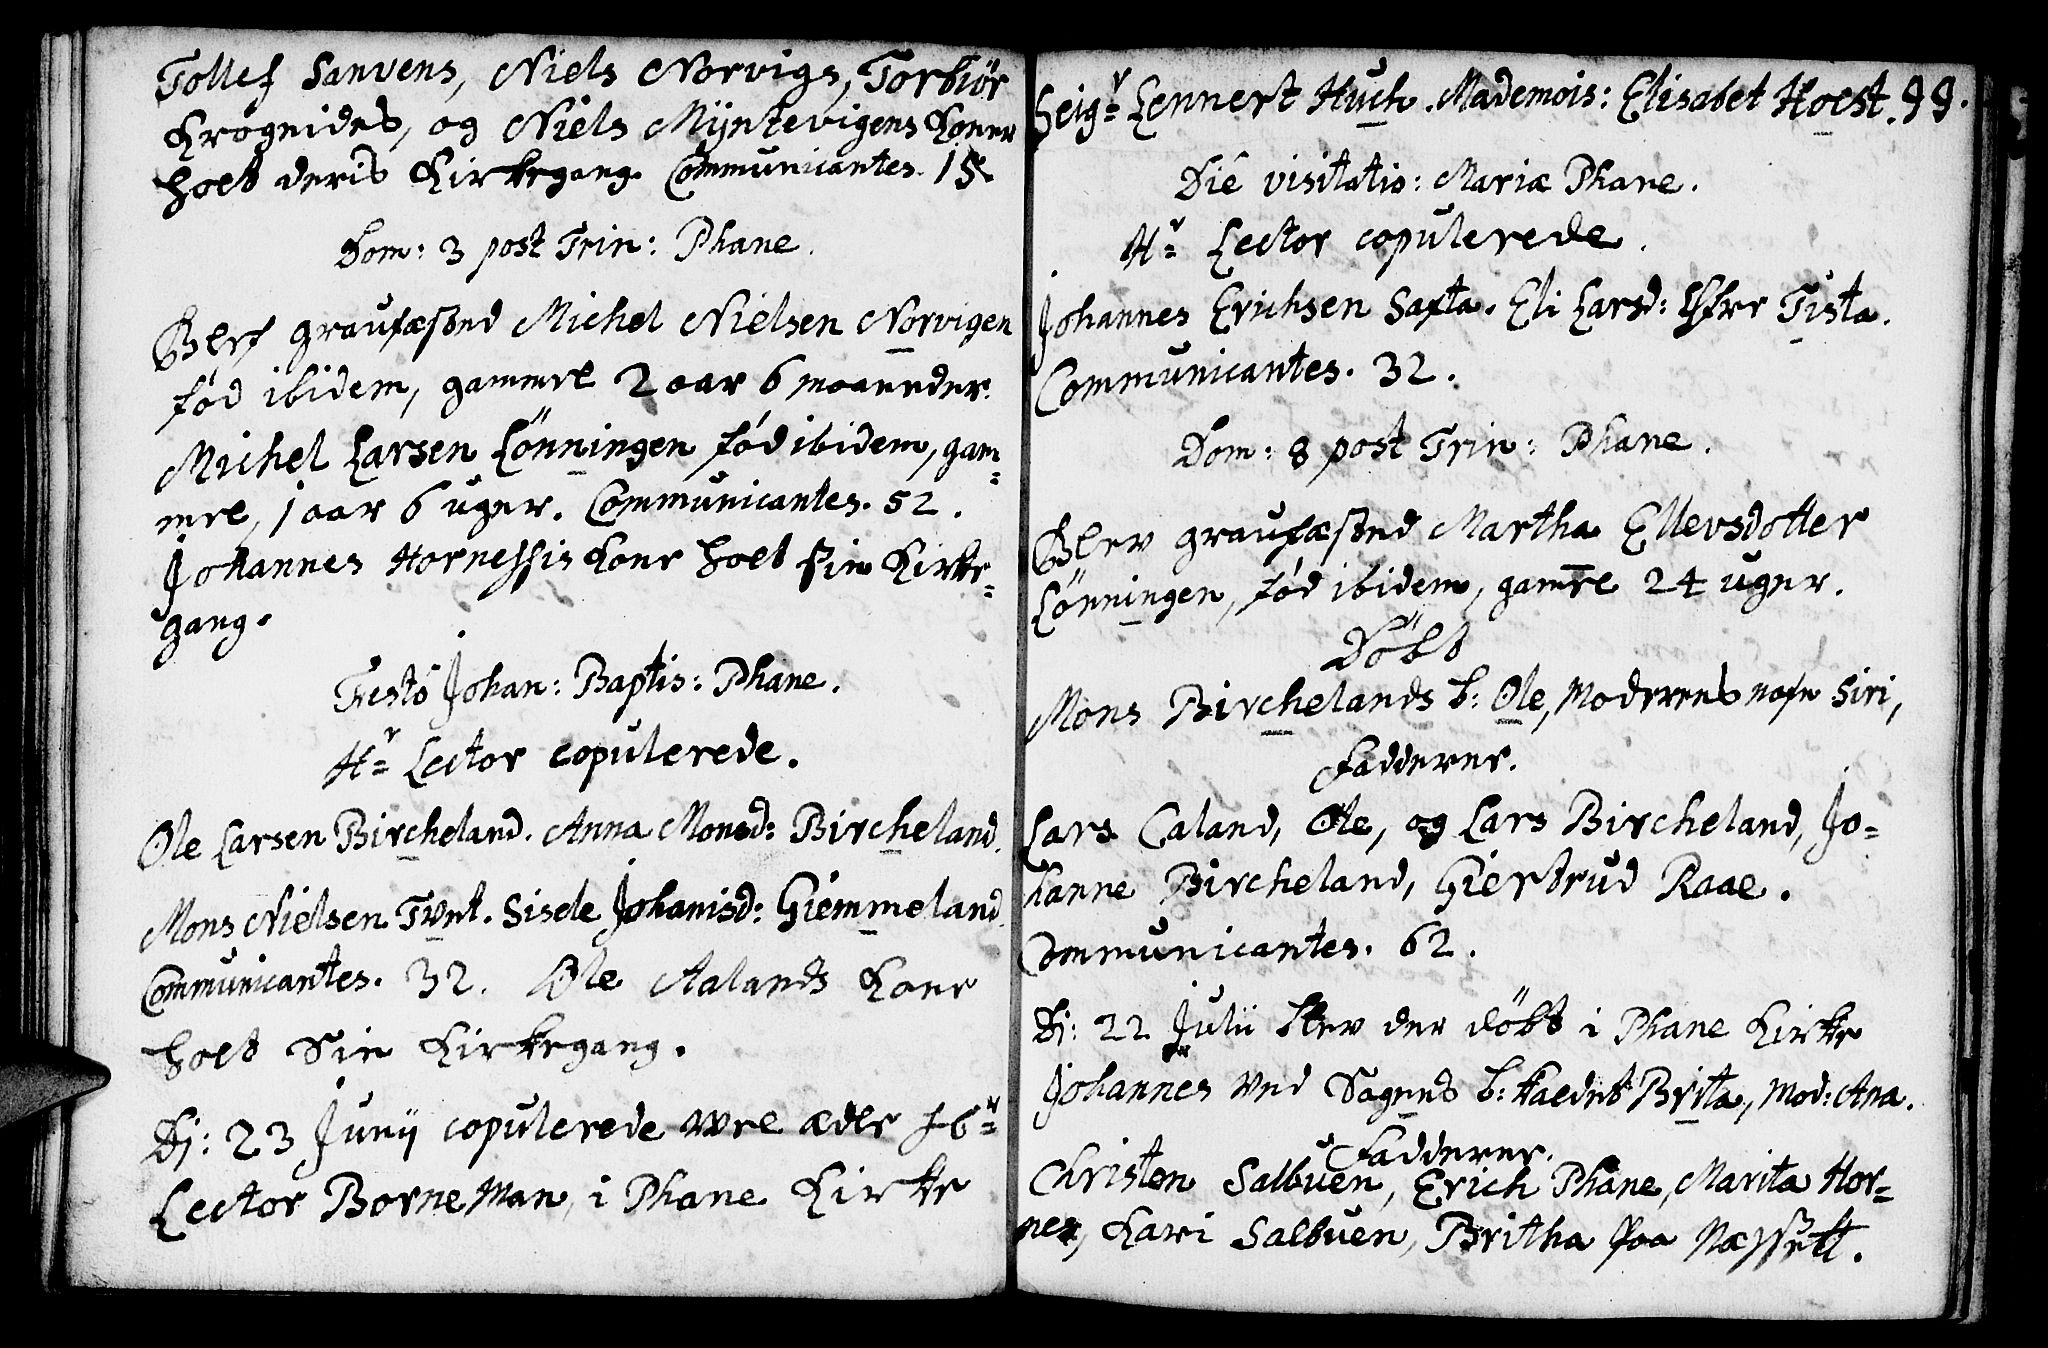 Tollef Sanvens, Niels Norvigs, Torbiör
Krogeides, og Niels Mÿntevigens Koner
holt deris Kirkegang. Communicantes. 15.
Dom: 3 post Trin: Phane.
Blef graufæsted Michel Nielsen Norvigen
fød ibidem, gammel 2 aar 6 maaneder.
Michel Larsen Lönningen fød ibidem, gam=
mel, 1 aar 6 uger. Communicantes. 52.
Johannes Hornessis Kone holt sin Kirke=
gang.
Festo Johan: Baptis: Phane.
Hr= Lector copulerede.
Ole Larsen Bircheland. Anna Monsd: Bircheland.
Mons Nielsen Tvnt. Sisele Johanisd: Giemmeland.
Communicantes. 32. Ole Aalands Kone
holt Sin Kirkegang.
Dj: 23 Junij copulerede vel ædle
Lector Borneman, i Phane Kirke
Seigr= Lennert Huch. Mademois: Elisabet Hoest. 99.
Die visitatio: Mariæ Phane.
Hr= Lector copulerede.
Johannes Erichsen Safta. Eli Larsd: Tista.
Communicantes. 32.
Dom: 8 post Trin: Phane.
Blev graufæsted Martha Ellevsdotter
Lönningen, fød ibidem, gam̅el 24 uger.
Döbt
Mons Birchelands b: Ole, Moderens nafn Siri,
Fadderer.
Lars Caland, Ole, og Lars Bircheland, Jo=
hanne Bircheland, Giertrud Raae.
Communicantes. 62.
Dj: 22 Julii blev der döbt i Phane Kirke
Johannes ved Sagens b: kaldet Brita, Mod: Ana.
Fadderer.
Christen Salbuen, Erich Phane, Marita Hor=
nes, Kari Salbuen, Britha paa Næssett.